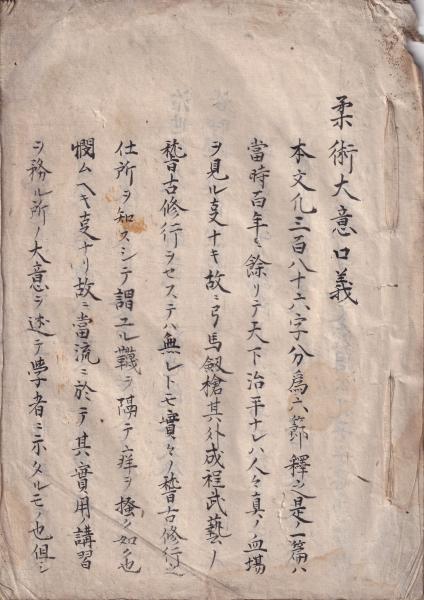 柔術大意口義
本文凡三百八十六字分為六節釋之是一篇ハ
當時百年ニ餘リテ天下治平ナレハ人々真ノ血場
ヲ見ル叓ナキ故ニ弓馬劔槍其外成程武藝ノ
稽古修行ヲセステハ無レトモ實々ノ稽古修行之
仕所ヲ知スシテ謂ユル韈ヲ隔テ痒ヲ搔ク如ク也
憫ムヘキ叓ナリ故ニ當流ニ於テ其實用ノ講習
ヲ務ル所ノ大意ヲ述テ學者ニ示タルモノ也但シ